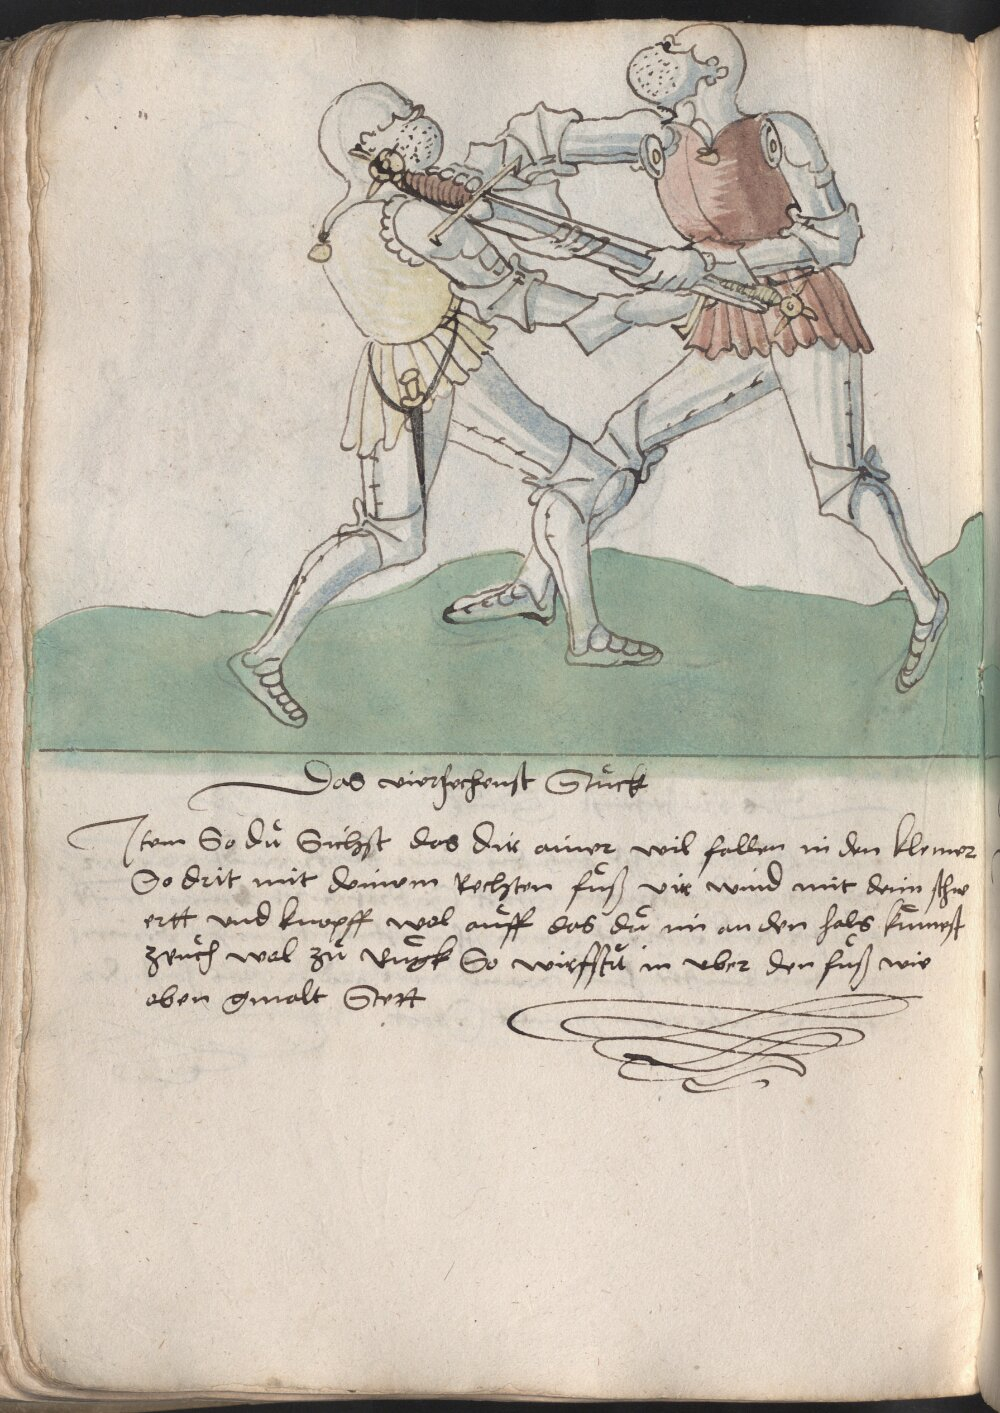 Das vierzechenst Stuckh
Item So du Sichst das dir ainer wil fallen in den klemer
So drit mit deinem Rechten fuß vir wind mit deim schw
ertt vnd knopff wol auff das du im an den hals kumest
zeuch wol zu Rugk So wirffstu in vber den fuß wie
oben gmalt Stett